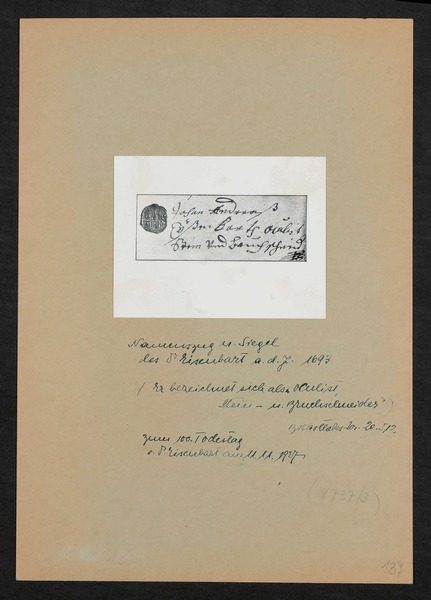 Johan Andreaß
Eÿßen Barth oculist
Stein und Bruchschneid
Namenszug u. Siegel
des Dr Eisenbart a. d. J. 1693
(Er bezeichnet sich als „Okulist,
Stein- u. Bruchschneider")
zum Todestag
v. Dr Eisenbart am 11.11.1937
(8737/3)
137